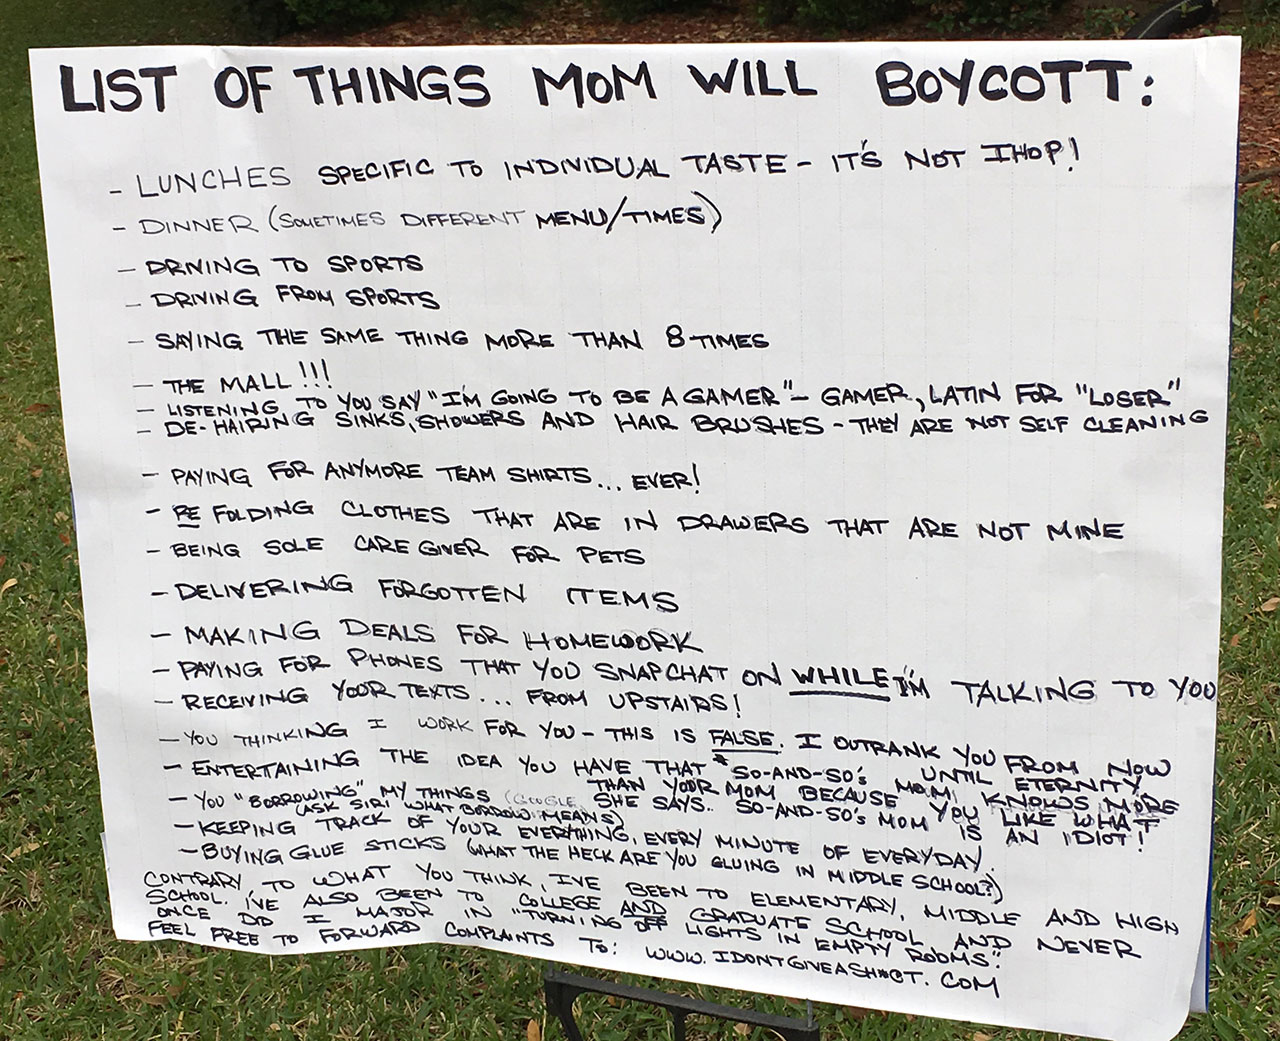 LIST OF THINGS MOM WILL BOYCOTT:
- LUNCHES SPECIFIC TO INDIVIDUAL TASTE - IT'S NOT IHOP!
- DINNER (SOMETIMES DIFFERENT MENU/TIMES)
- DRIVING TO SPORTS
- DRIVING FROM SPORTS
- SAYING THE SAME THING MORE THAN 8 TIMES
- THE MALL!!!
- LISTENING TO YOU SAY "I'M GOING TO BE A GAMER" - GAMER, LATIN FOR "LOSER"
- DE-HAIRING SINKS, SHOWERS AND HAIR BRUSHES - THEY ARE NOT SELF CLEANING
- PAYING FOR ANYMORE TEAM SHIRTS... EVER!
- RE FOLDING CLOTHES THAT ARE IN DRAWERS THAT ARE NOT MINE
- BEING SOLE CARE GIVER FOR PETS
- DELIVERING FORGOTTEN ITEMS
- MAKING DEALS FOR HOMEWORK
- PAYING FOR PHONES THAT YOU SNAPCHAT ON WHILE I'M TALKING TO YOU
- RECEIVING YOUR TEXTS... FROM UPSTAIRS!
- YOU THINKING I WORK FOR YOU - THIS IS FALSE. I OUTRANK YOU FROM NOW
UNTIL ETERNITY.
- ENTERTAINING THE IDEA YOU HAVE THAT "SO-AND-SO'S MOM KNOWS MORE
THAN YOUR MOM BECAUSE YOU LIKE WHAT
SHE SAYS.. SO-AND-SO'S MOM IS AN IDIOT!
- YOU "BORROWING" MY THINGS (GOOGLE
(ASK SIRI WHAT BORROW MEANS)
- KEEPING TRACK OF YOUR EVERYTHING, EVERY MINUTE OF EVERYDAY.
- BUYING GLUE STICKS (WHAT THE HECK ARE YOU GLUING IN MIDDLE SCHOOL?)
CONTRARY TO WHAT YOU THINK, I'VE BEEN TO ELEMENTARY, MIDDLE AND HIGH
SCHOOL. I'VE ALSO BEEN TO COLLEGE AND GRADUATE SCHOOL AND NEVER
ONCE DID I MAJOR IN "TURNING OFF LIGHTS IN EMPTY ROOMS".
FEEL FREE TO FORWARD COMPLAINTS TO: WWW.IDONTGIVEASH*CT.COM